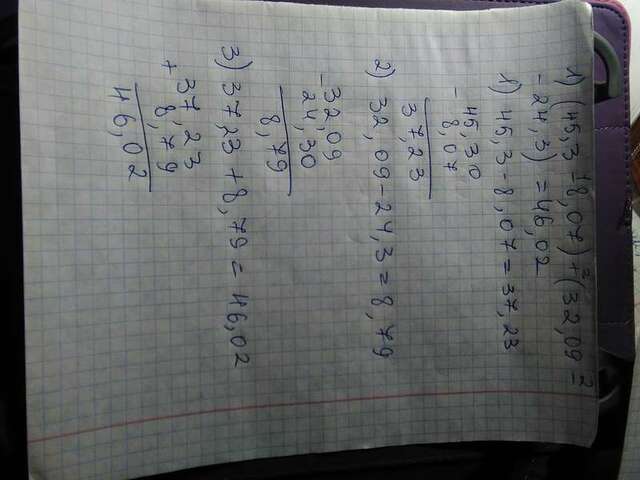 1) (45,3 - 8,07) + (32,09 =
- 24,3) = 46,02
1) 45,3 - 8,07 = 37,23
- 45,30
8,07
37,23
2) 32,09 - 24,3 = 8,79
- 32,09
24,30
8,79
3) 37,23 + 8,79 = 46,02
+ 37,23
8,79
46,02